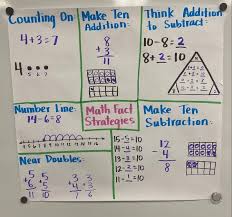 Counting On
4+3=7
4
5 6 7
Make Ten
Addition:
8
+ 3
11
Think Addition
to Subtract:
10-8=2
8+2=10
Number Line:
14-6=8
Math Fact
Strategies
15-5=10
14-4=10
13-3=10
12-2=10
11-1=10
Make Ten
Subtraction:
12
4
8
Near Doubles: